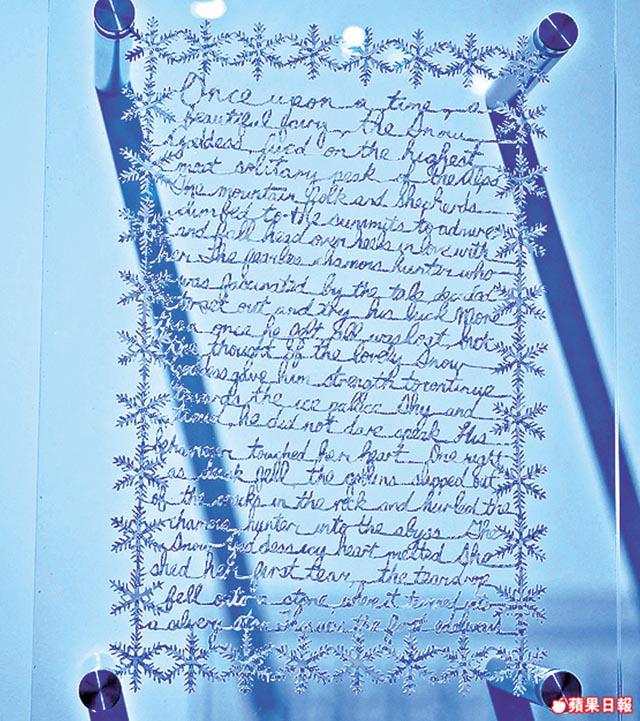 Once upon a time, a
beautiful fairy, the Snow
Goddess, lived on the highest
most solitary peak of the Alps
The mountain folk and shepherds
climbed to the summits to admire
and fall head over heels in love with
her The fearles chamois hunter who
was fascinated by the tale decided
to set out and try his luck More
than once he felt all was lost but
the thought of the lovely Snow
Goddess gave him strength to continue
towards the ice palace Shy and
he did not dare speak His
behaviour touched her heart One night
as dusk fell the goblins slipped out
of the cracks in the rock and hurled the
chamois hunter into the abyss The
Snow Goddess icy heart melted She
shed her first tear, the teardrop
fell onto a stone where it turned into
a silvery star This was the first edelweiss
蘋果日報